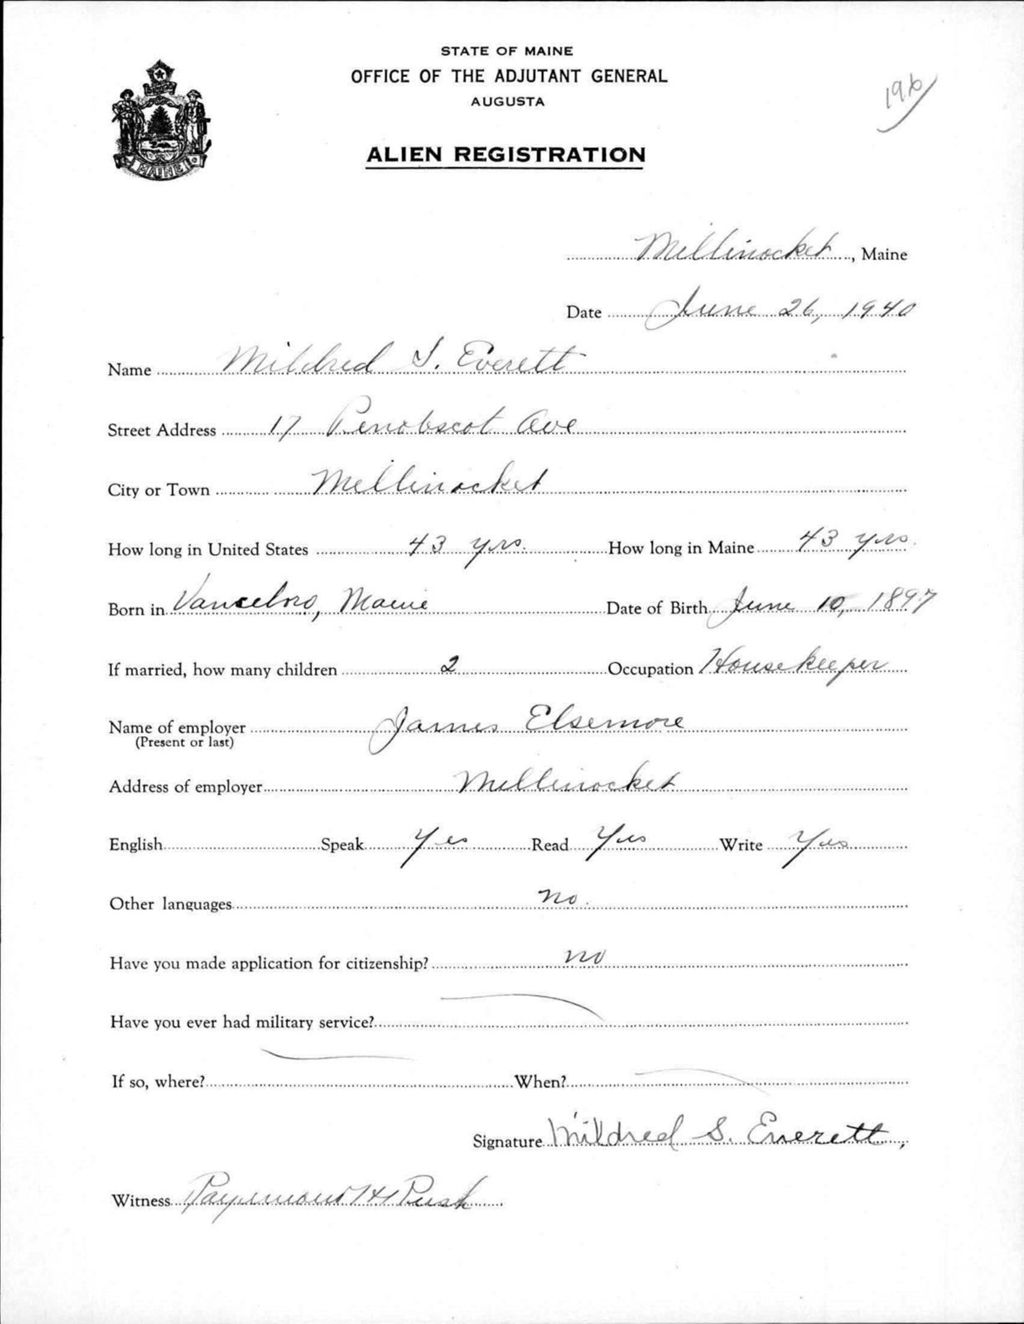 STATE OF MAINE
OFFICE OF THE ADJUTANT GENERAL
AUGUSTA
ALIEN REGISTRATION
MAINE
Millinocket, Maine
Date June 26, 1940
Name Mildred S. Everett
Street Address 17 Penobscot Ave
City or Town Millinocket
How long in United States 43 yrs. How long in Maine 43 yrs.
Born in Vanceboro, Maine Date of Birth June 10, 1897
If married, how many children 2 Occupation Housekeeper
Name of employer James Elsemore
(Present or last)
Address of employer Millinocket
English Speak Yes Read Yes Write Yes
Other languages no.
Have you made application for citizenship? no
Have you ever had military service?
If so, where? When?
Signature Mildred S. Everett,
Witness Raymond H Rush